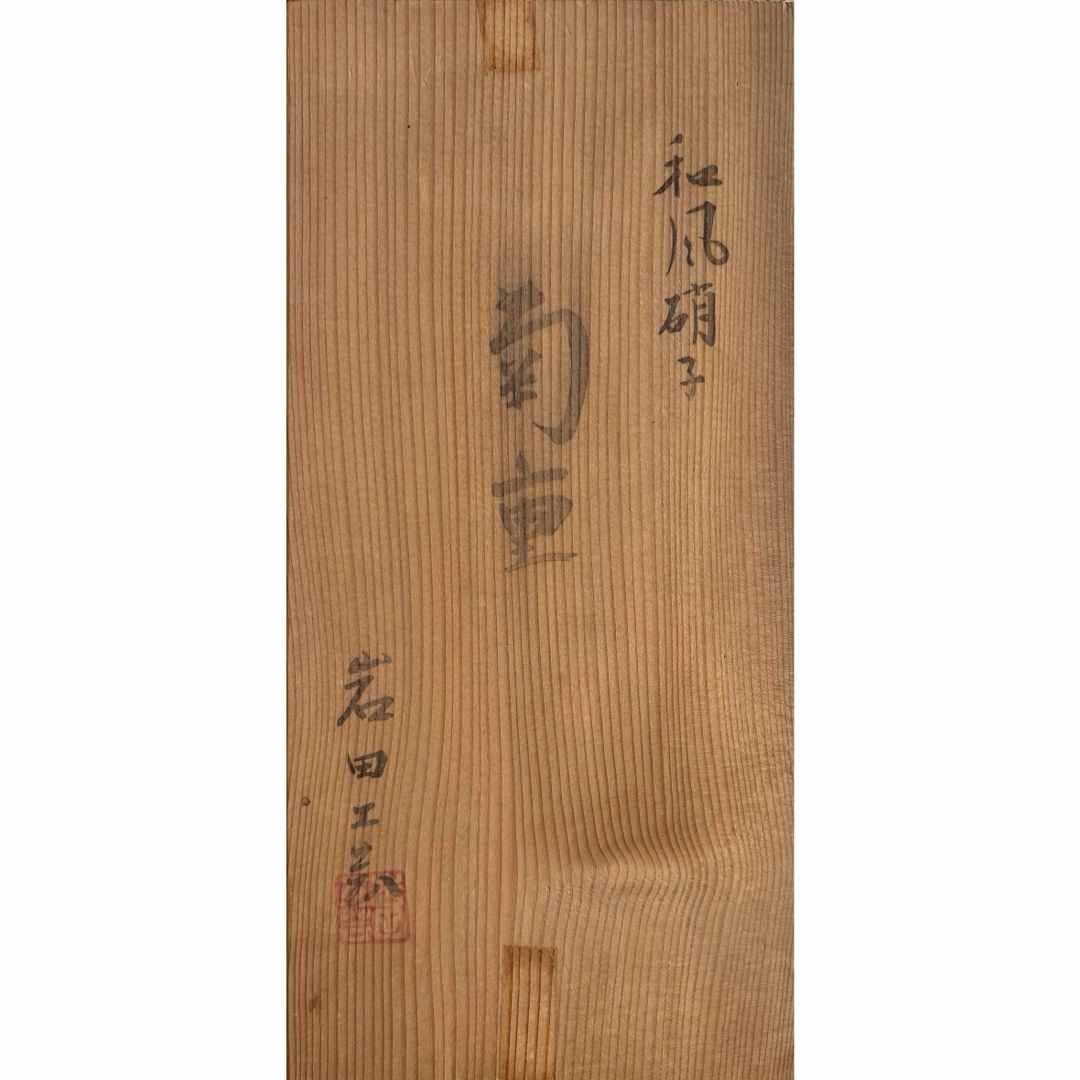 和風硝子
菊重
岩田工芸